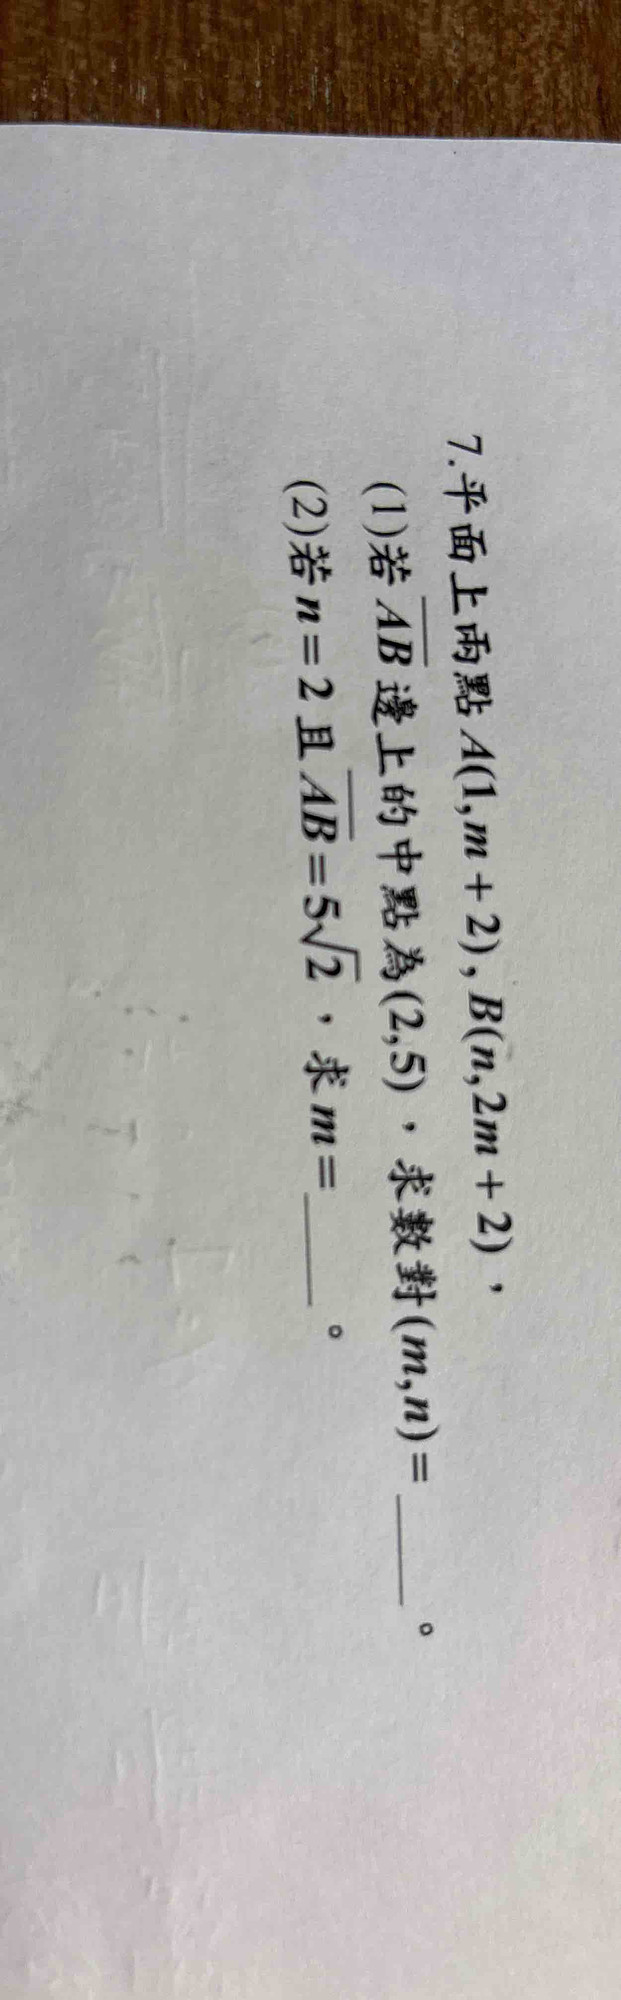 7.平面上兩點 A(1,m+2), B(n,2m+2)，
(1)若 \overline{AB} 邊上的中點為(2,5)，求數對(m,n)=____。
(2)若 n=2 且 \overline{AB}=5√2，求 m=____。